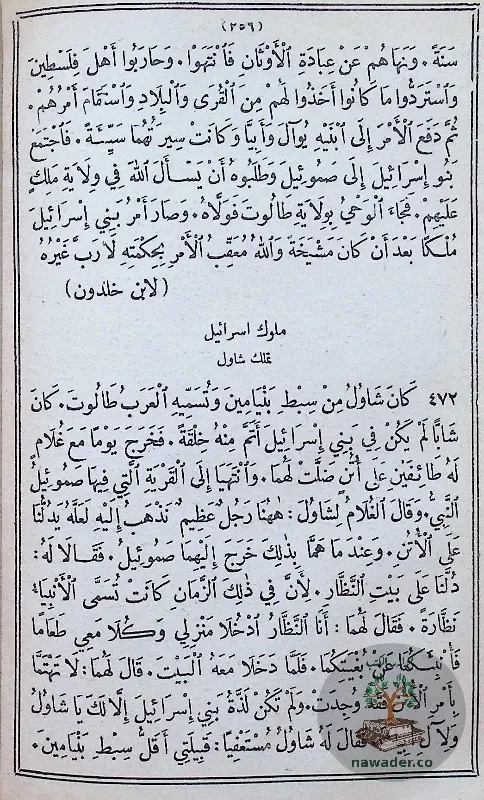 (٢٥٦)
سَنَةً. وَنَهَاهُمْ عَنْ عِبَادَةِ ٱلْأَوْثَانِ فَٱنْتَهَوْا. وَحَارَبُوا أَهْلَ فِلَسْطِينَ
وَٱسْتَرَدُّوا مَا كَانُوا أَخَذُوا لَهُمْ مِنَ ٱلْقُرَى وَٱلْبِلَادِ وَٱسْتَقَامَ أَمْرُهُمْ.
ثُمَّ دَفَعَ ٱلْأَمْرَ إِلَى ٱبْنَيْهِ يُوآلَ وَأَبِيَّا وَكَانَتْ سِيرَتُهُمَا سَيِّئَةً. فَٱجْتَمَعَ
بَنُو إِسْرَائِيلَ إِلَى صَمُوئِيلَ وَطَلَبُوهُ أَنْ يَسْأَلَ ٱللهَ فِي وِلَايَةِ مَلِكٍ
عَلَيْهِمْ. فَجَاءَ ٱلْوَحْيُ بِوِلَايَةِ طَالُوتَ فَوَلَّاهُ. وَصَارَ أَمْرُ بَنِي إِسْرَائِيلَ
مُلْكًا بَعْدَ أَنْ كَانَ مَشْيَخَةً وَٱللهُ مُعَقِّبُ ٱلْأَمْرِ بِحِكْمَتِهِ لَا رَبَّ غَيْرُهُ
(لابن خلدون)
ملوك اسرائيل
تملك شاول
٤٧٢ كَانَ شَاوُلُ مِنْ سِبْطِ بَنْيَامِينَ وَتُسَمِّيهِ ٱلْعَرَبُ طَالُوتَ. كَانَ
شَابًّا لَمْ يَكُنْ فِي بَنِي إِسْرَائِيلَ أَتَمُّ مِنْهُ خِلْقَةً. فَخَرَجَ يَوْمًا مَعَ غُلَامٍ
لَهُ طَائِفَيْنِ عَلَى أُتُنٍ ضَلَّتْ لَهُمَا. وَٱنْتَهَيَا إِلَى ٱلْقَرْيَةِ ٱلَّتِي فِيهَا صَمُوئِيلُ
ٱلنَّبِيُّ. وَقَالَ ٱلْغُلَامُ لِشَاوُلَ: هٰهُنَا رَجُلٌ عَظِيمٌ نَذْهَبُ إِلَيْهِ لَعَلَّهُ يَدُلُّنَا
عَلَى ٱلْأُتُنِ. وَعِنْدَ مَا هَمَّا بِذٰلِكَ خَرَجَ إِلَيْهِمَا صَمُوئِيلُ. فَقَالَا لَهُ:
دُلَّنَا عَلَى بَيْتِ ٱلنَّظَّارِ. لِأَنَّ فِي ذٰلِكَ ٱلزَّمَانِ كَانَتْ تُسَمَّى ٱلْأَنْبِيَاءُ
نَظَّارَةً. فَقَالَ لَهُمَا: أَنَا ٱلنَّظَّارُ ٱدْخُلَا مَنْزِلِي وَكُلَا مَعِي طَعَامًا
فَأُنْبِئَكُمَا عَنْ بُغْيَتِكُمَا. فَلَمَّا دَخَلَا مَعَهُ ٱلْبَيْتَ. قَالَ لَهُمَا: لَا تَهْتَمَّا
بِأَمْرِ فَقَدْ وُجِدَتْ. وَلَمْ تَكُنْ لَذَّةُ بَنِي إِسْرَائِيلَ إِلَّا لَكَ يَا شَاوُلُ
وَلِآلِ فَقَالَ لَهُ شَاوُلُ مُسْتَعْفِيًا: قَبِيلَتِي أَقَلُّ سِبْطِ بَنْيَامِينَ.
nawader.co